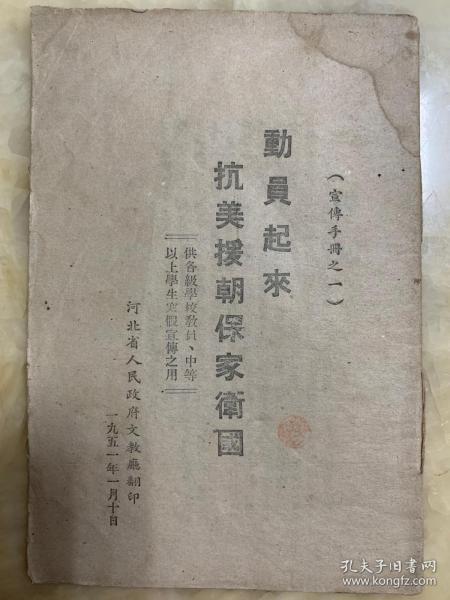 （宣傳手冊之一）
動員起來
抗美援朝保家衛國
供各級學校教員、中等
以上學生寒假宣傳之用
河北省人民政府文教廳翻印
一九五一年一月十日
孔夫子旧书网
www.kongfz.com